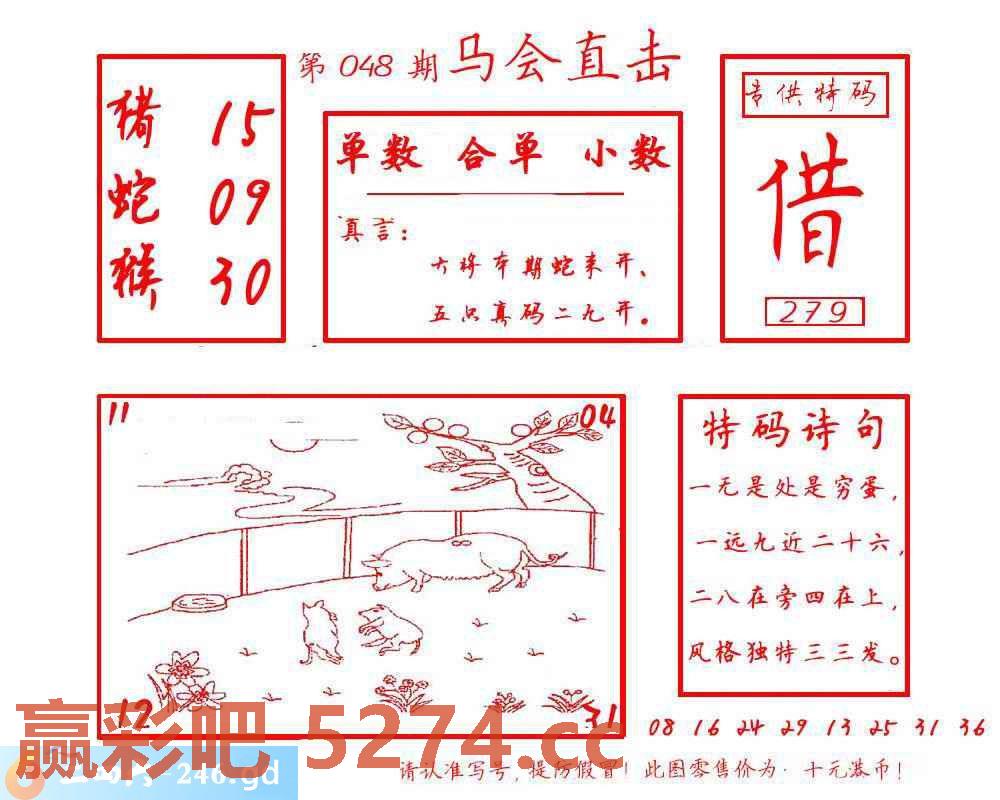 第 048 期 马会直击
猪 15
蛇 09
猴 30
单数 合单 小数
真言：
大将本期蛇来开、
五只真码二九开。
专供特码
借
279
11
04
12
31
特码诗句
一无是处是穷蛋，
一远九近二十六，
二八在旁四在上，
风格独特三三发。
08 16 24 29 13 25 31 36
赢彩吧 5274.cc
-246.gd
请认准写号，提防假冒！此图零售价为·十元港币！